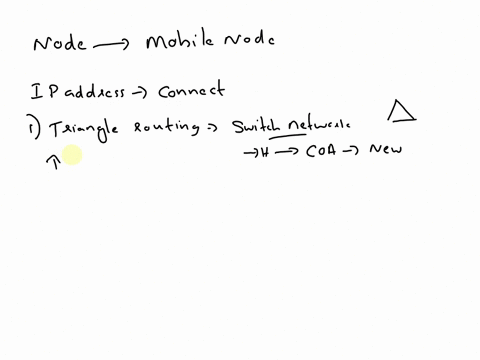 Node → Mobile Node
IP address → Connect
1) Triangle routing → Switch network
→ H → COA → New
↑